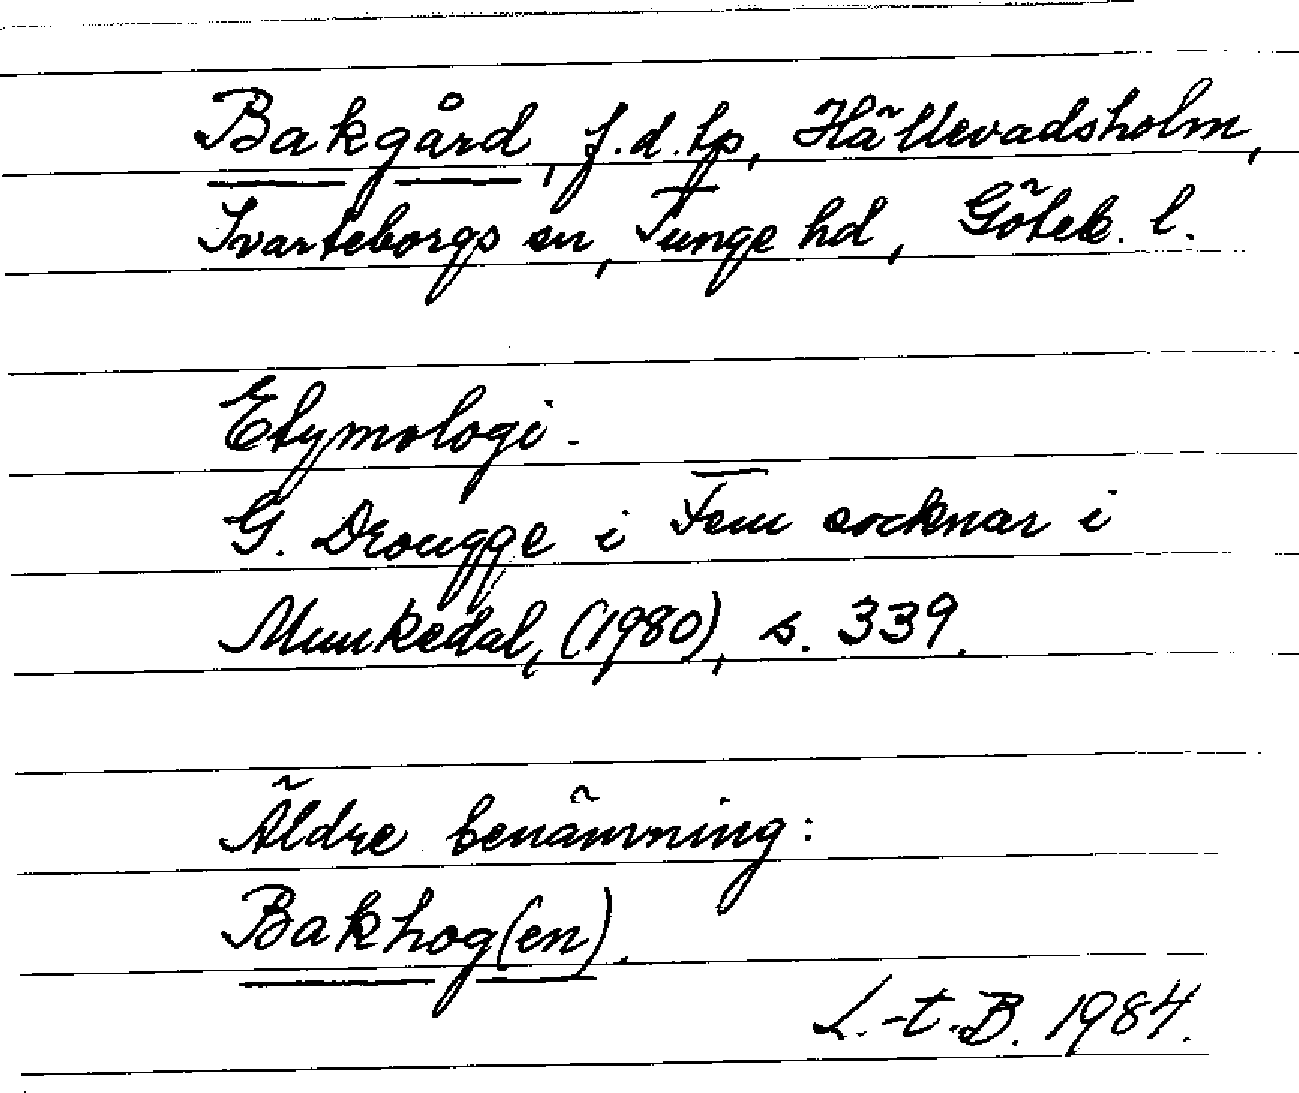 Bakgård, f.d. tp, Hällevadsholm,
Svarteborgs sn, Tunge hd, Göteb. l.
Etymologi.
G. Drougge i Fem socknar i
Munkedal, (1980), s. 339.
Äldre benämning:
Bakhog(en).
L.-t.-B. 1984.